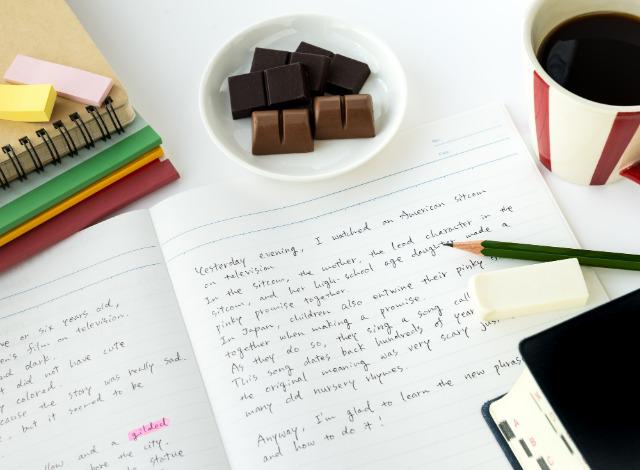 ve or six years old,
en's film on television.
nd dark.
t did not have cute
y colored.
cause the story was really sad.
, but it seemed to be
gilded
llow and a
bore the city.
the statue
Yesterday evening, I watched an American sitcom
on television.
In the sitcom, the mother, the lead character in the
sitcom, and her high-school age daughter made a
pinky promise together.
In Japan, children also entwine their pinky
together when making a promise.
As they do so, they sing a song call
This song dates back hundreds of year
the original meaning was very scary jus
many old nursery rhymes.
Anyway, I'm glad to learn the new phras
and how to do it!
A
B
C